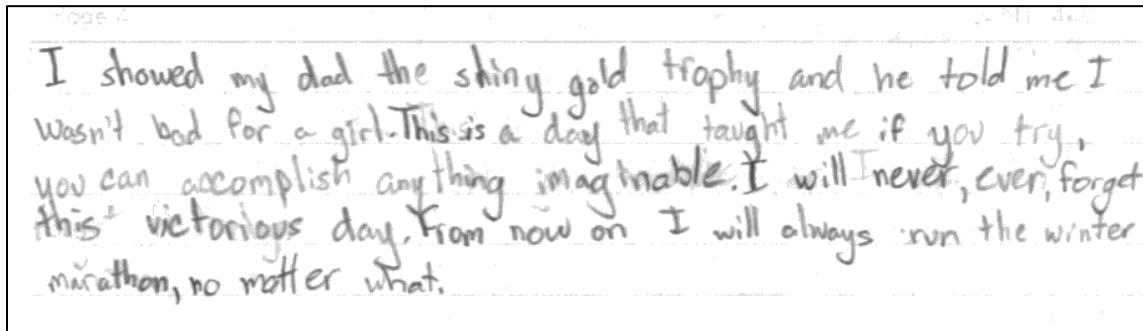 I showed my dad the shiny gold trophy and he told me I
wasn't bad for a girl. This is a day that taught me if you try,
you can accomplish anything imaginable. I will never, ever, forget
this victorious day. From now on I will always run the winter
marathon, no matter what.